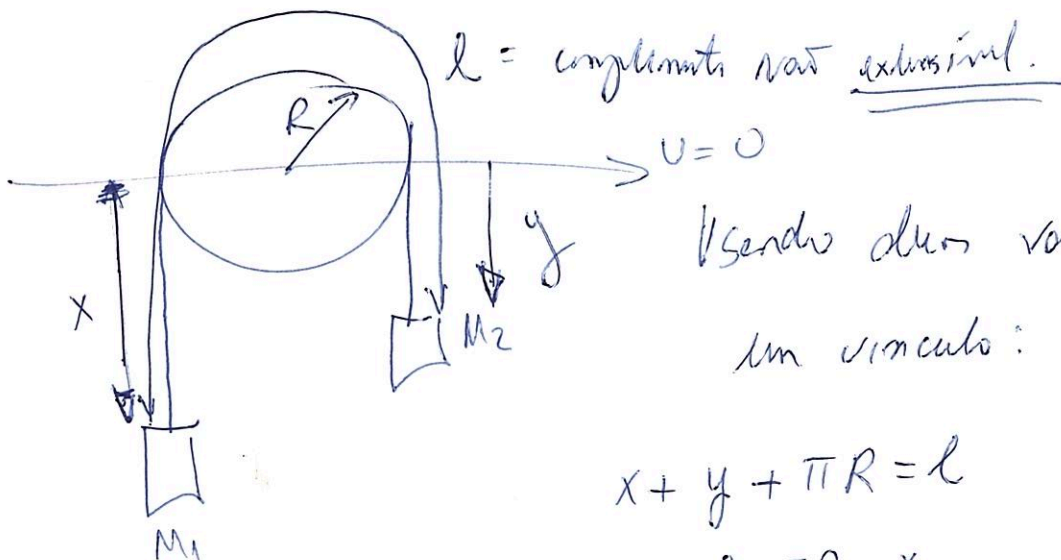 l = comprimento não extensível.
R
U = 0
y
Usando duas va
x
M2
um vínculo:
x + y + πR = l
M1